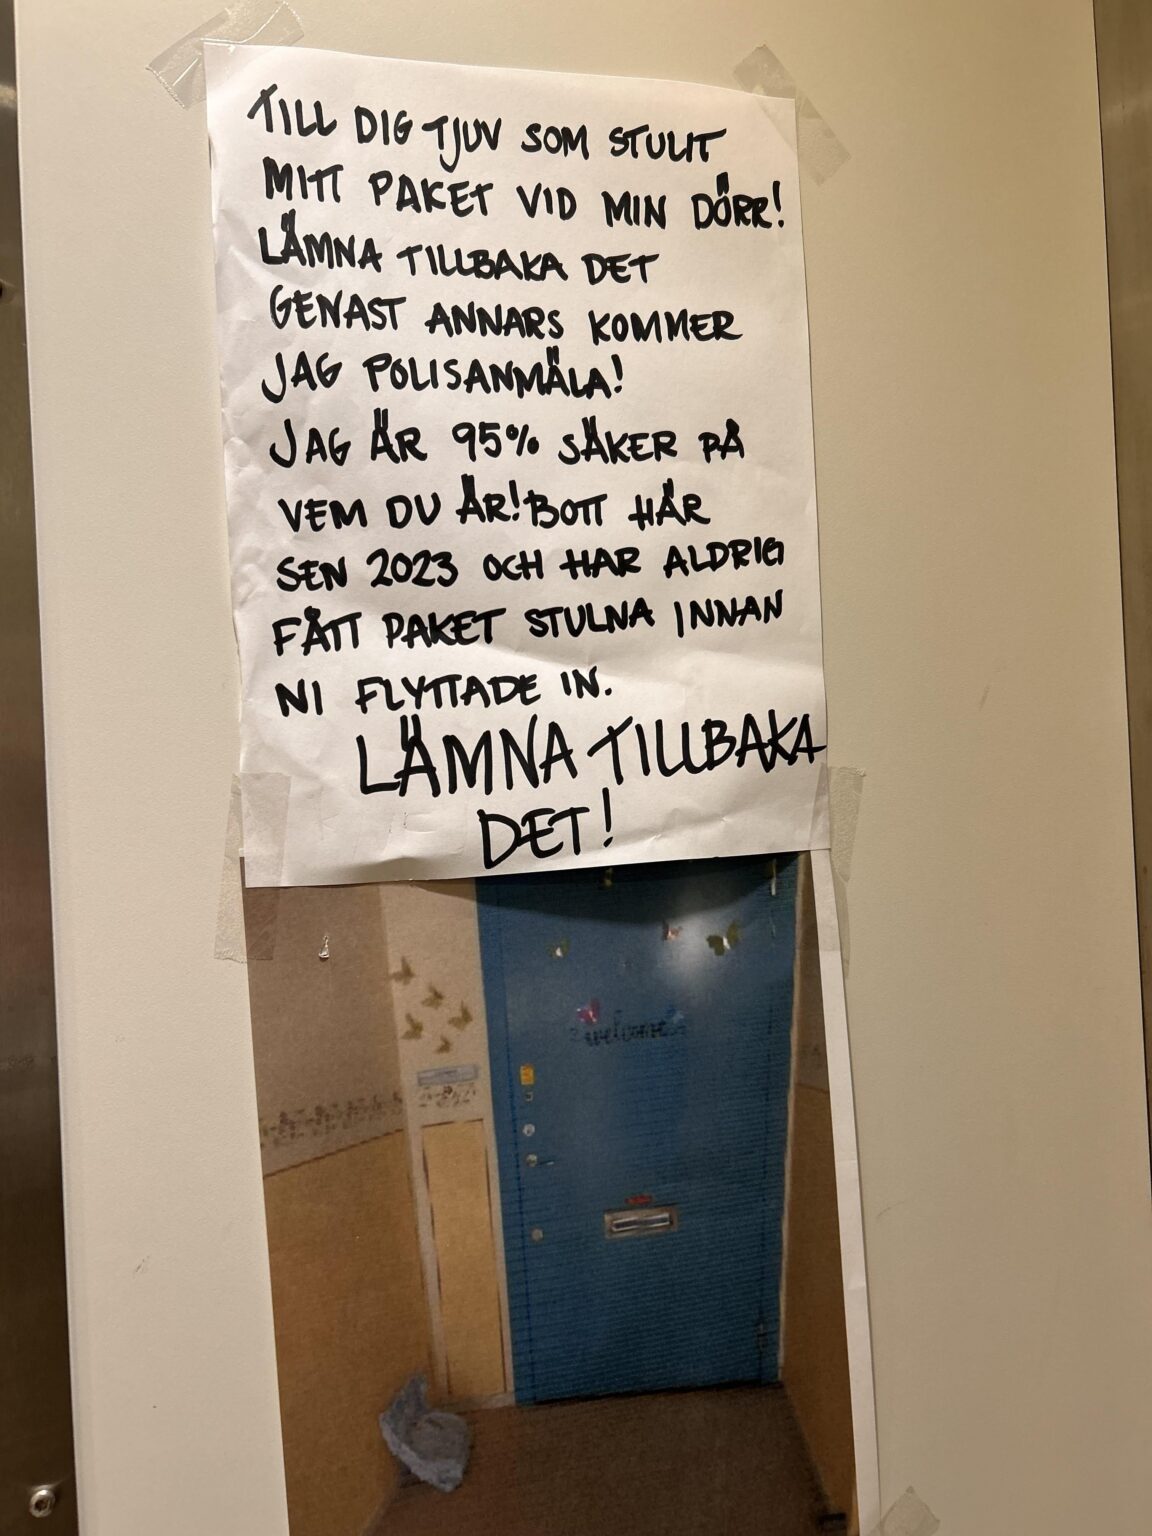 TILL DIG TJUV SOM STULIT
MITT PAKET VID MIN DÖRR!
LÄMNA TILLBAKA DET
GENAST ANNARS KOMMER
JAG POLISANMÄLA!
JAG ÄR 95% SÄKER PÅ
VEM DU ÄR! BOTT HÄR
SEN 2023 OCH HAR ALDRIG
FÅTT PAKET STULNA INNAN
NI FLYTTADE IN.
LÄMNA TILLBAKA
DET!
welcome